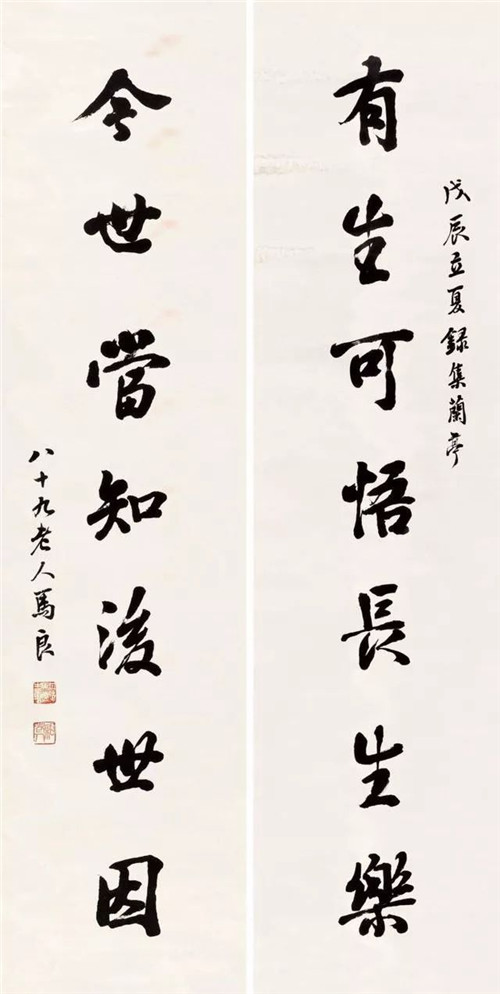 戊辰立夏録集蘭亭
有生可悟長生樂
今世當知後世因
八十九老人馬良